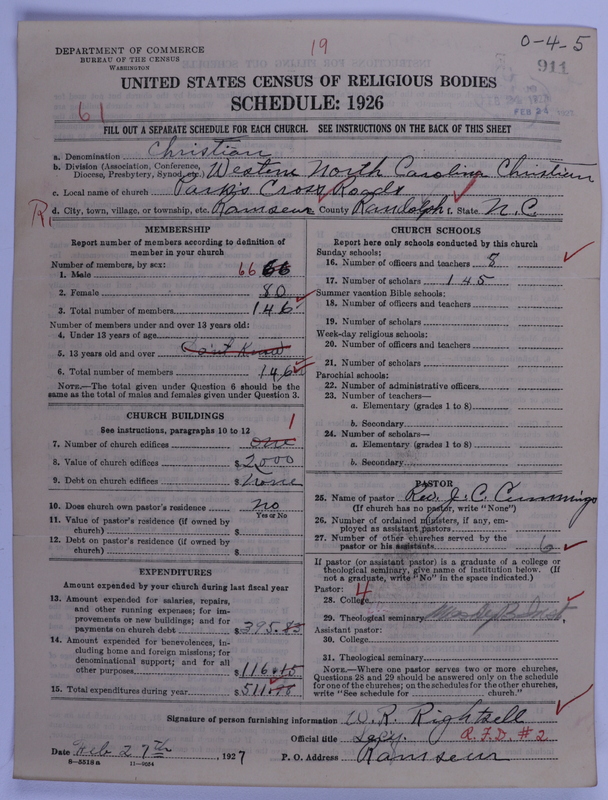 19
0-4-5
DEPARTMENT OF COMMERCE
BUREAU OF THE CENSUS
WASHINGTON
911
FEB 24 1927
UNITED STATES CENSUS OF RELIGIOUS BODIES
61
SCHEDULE: 1926
FILL OUT A SEPARATE SCHEDULE FOR EACH CHURCH. SEE INSTRUCTIONS ON THE BACK OF THIS SHEET
a. Denomination Christian
b. Division (Association, Conference, Diocese, Presbytery, Synod, etc.) Western North Carolina Christian
c. Local name of church Park's Cross Roads
R1 d. City, town, village, or township, etc. Ramseur County Randolph f. State N.C.
MEMBERSHIP
Report number of members according to definition of
member in your church
Number of members, by sex:
1. Male 66 66
2. Female 80
3. Total number of members 146
Number of members under and over 13 years old:
4. Under 13 years of age
5. 13 years old and over Don't Know
6. Total number of members 146
NOTE.—The total given under Question 6 should be the
same as the total of males and females given under Question 3.
CHURCH BUILDINGS
See instructions, paragraphs 10 to 12
1
7. Number of church edifices one
8. Value of church edifices $2,000
9. Debt on church edifices $None
10. Does church own pastor's residence No
Yes or No
11. Value of pastor's residence (if owned by
church) $
12. Debt on pastor's residence (if owned by
church) $
EXPENDITURES
Amount expended by your church during last fiscal year
13. Amount expended for salaries, repairs,
and other running expenses; for im-
provements or new buildings; and for
payments on church debt $395.83
14. Amount expended for benevolences, in-
cluding home and foreign missions; for
denominational support; and for all
other purposes $116.15
15. Total expenditures during year $511.
CHURCH SCHOOLS
Report here only schools conducted by this church
Sunday schools:
16. Number of officers and teachers 8
17. Number of scholars 145
Summer vacation Bible schools:
18. Number of officers and teachers
19. Number of scholars
Week-day religious schools:
20. Number of officers and teachers
21. Number of scholars
Parochial schools:
22. Number of administrative officers
23. Number of teachers—
a. Elementary (grades 1 to 8)
b. Secondary
24. Number of scholars—
a. Elementary (grades 1 to 8)
b. Secondary
PASTOR
25. Name of pastor Rev. J. C. Cummings
(If church has no pastor, write "None")
26. Number of ordained ministers, if any, em-
ployed as assistant pastors
27. Number of other churches served by the
pastor or his assistants 6
If pastor (or assistant pastor) is a graduate of a college or
theological seminary, give name of institution below. (If
not a graduate, write "No" in the space indicated.)
Pastor:
28. College 4
29. Theological seminary
Assistant pastor:
30. College
31. Theological seminary
NOTE.—Where one pastor serves two or more churches,
Questions 28 and 29 should be answered only on the schedule
for one of the churches; on the schedules for the other churches,
write "See schedule for church."
Signature of person furnishing information W. R. Rightsell
Official title Secy. R.F.D. #2
Date Feb 27th, 1927 P. O. Address Ramseur
8—5518a 11—9024